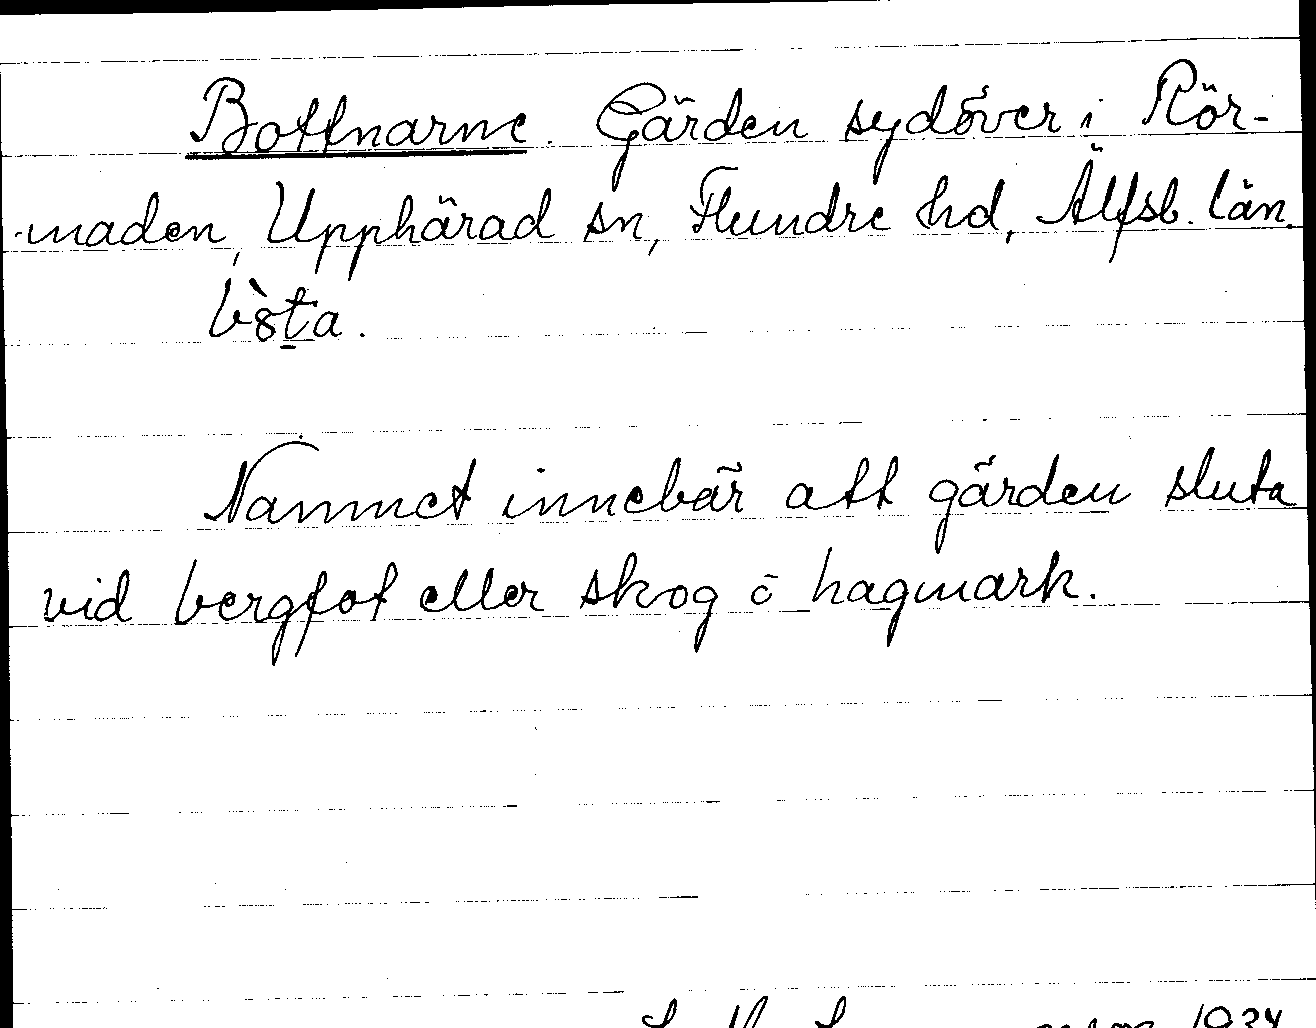 Bottnarne. Gärden sydöver i Rör-
maden, Upphärad sn, Flundre hd, Älfsb. län.
Namnet innebär att gärden sluta
vid bergfot eller skog ö hagmark.
1934